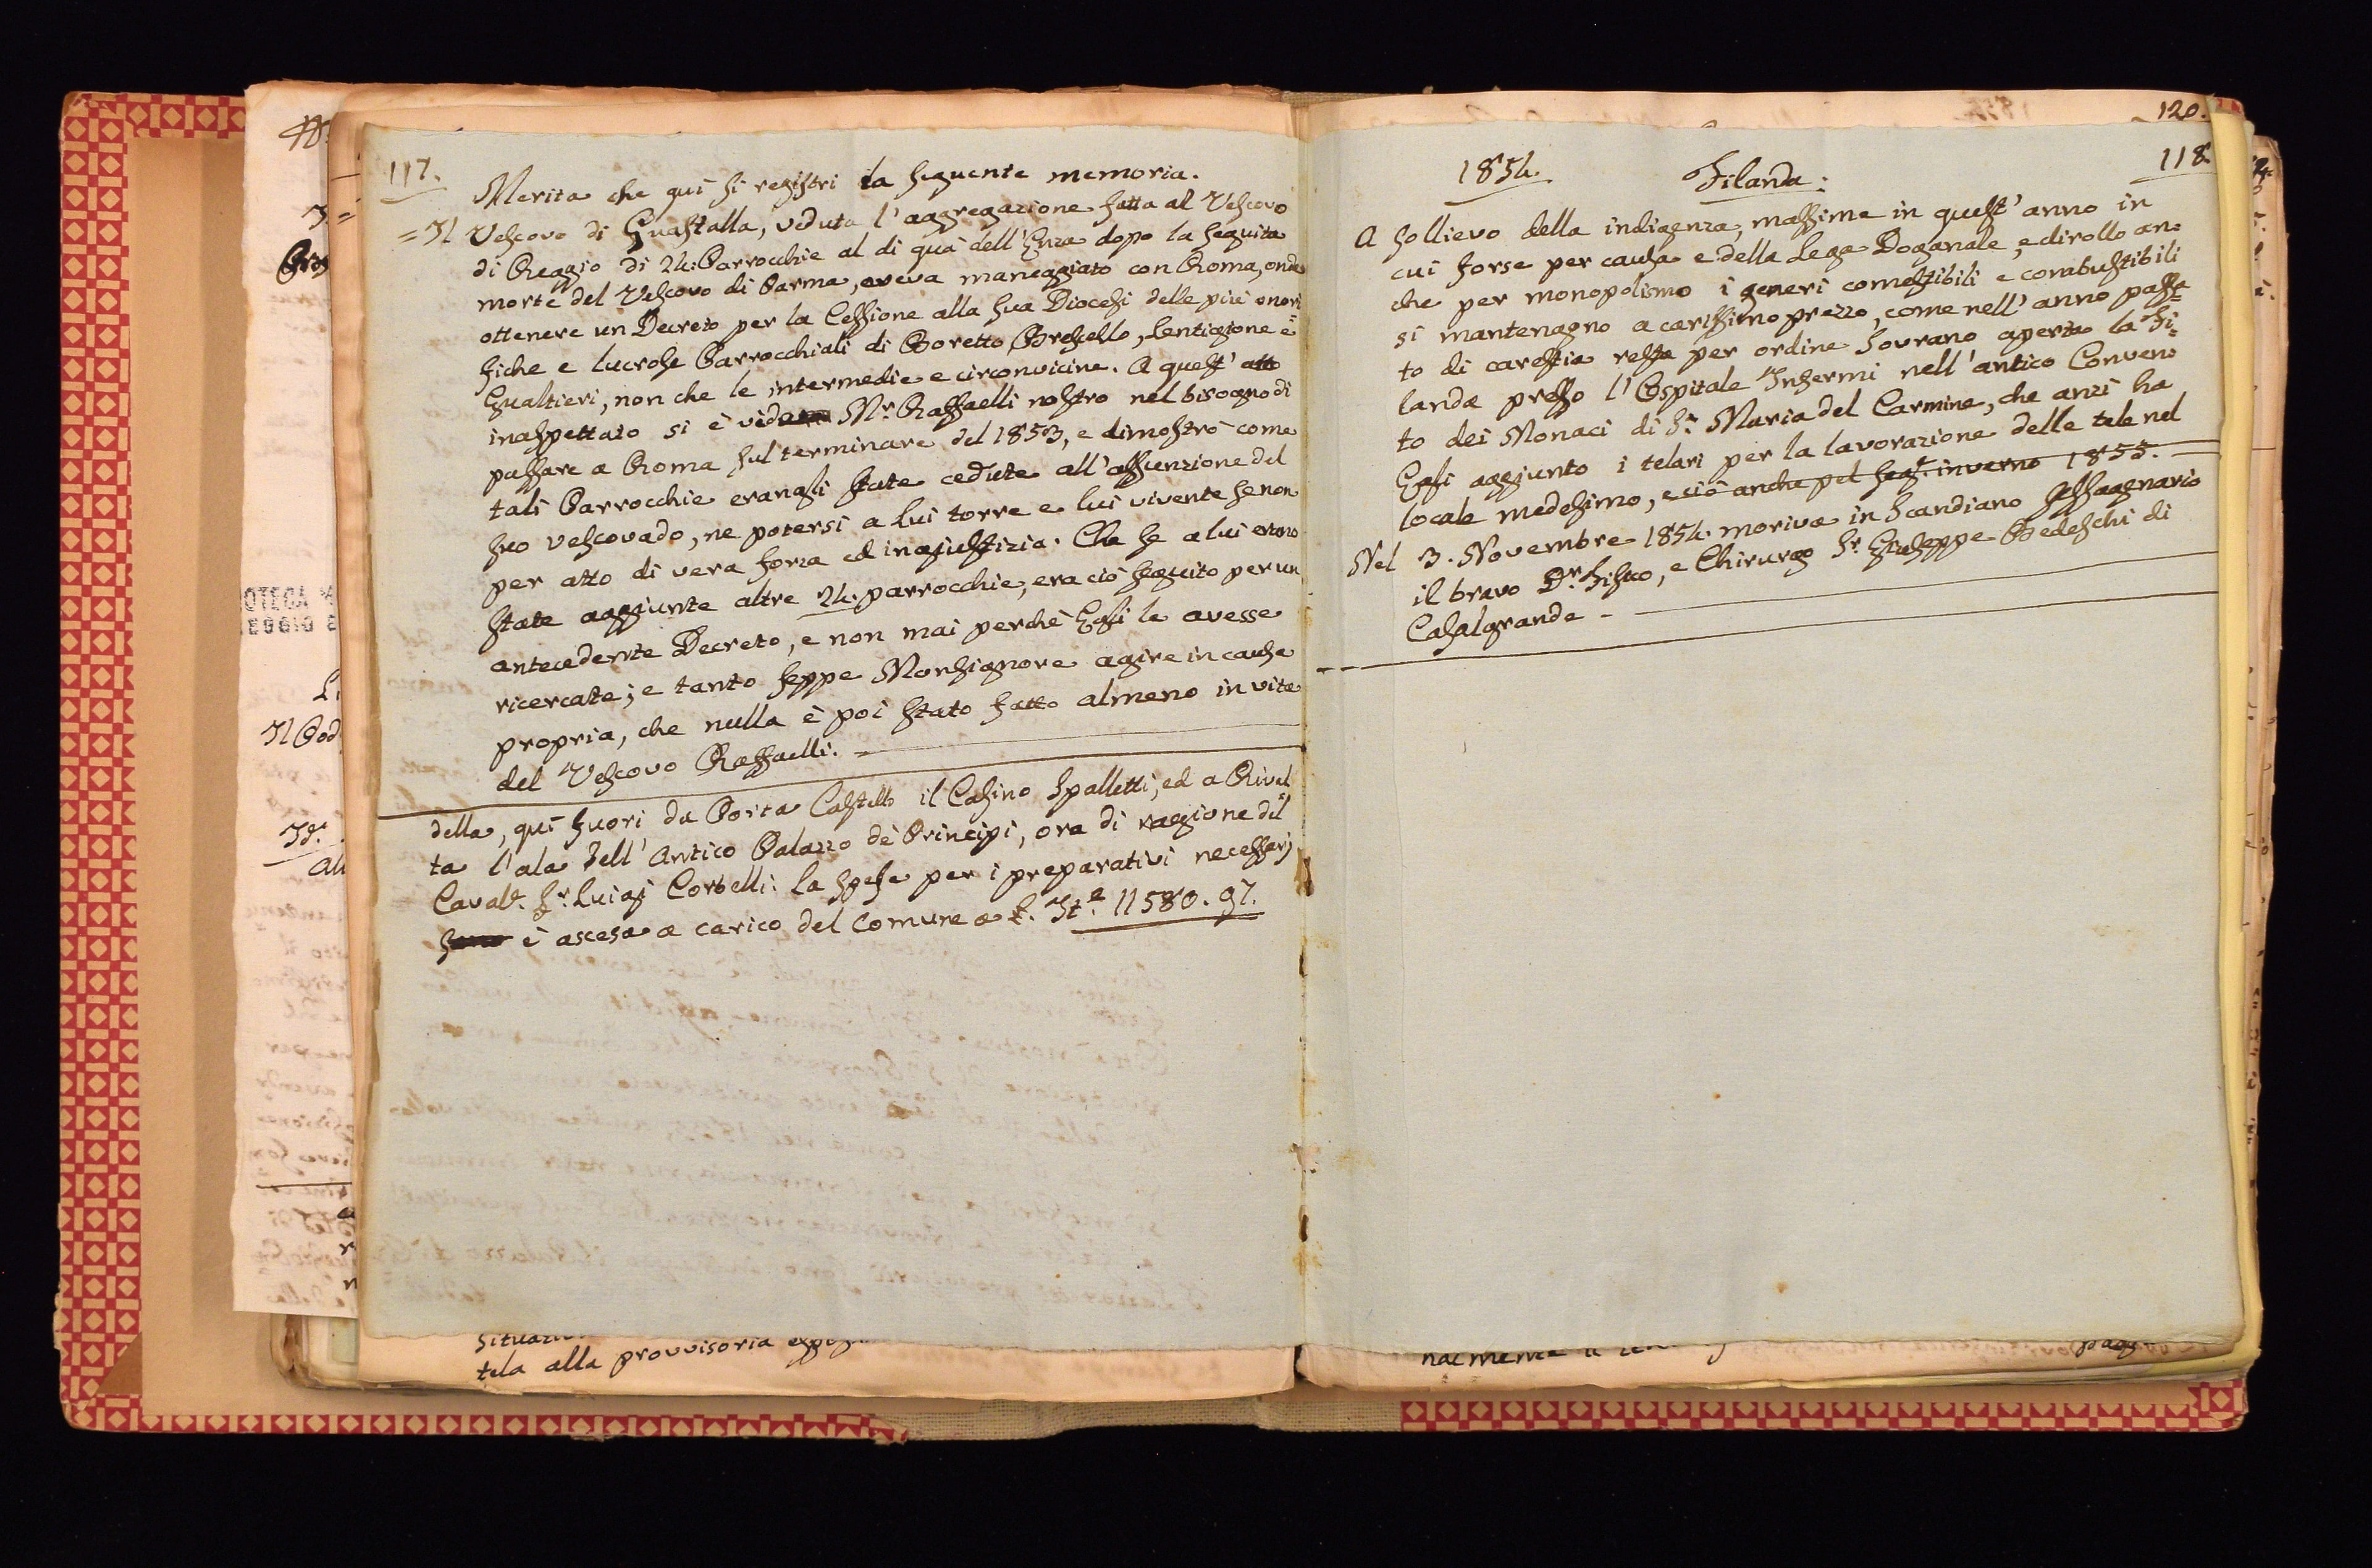 117.
Merita che quì si registri la seguente memoria.
= Il Vescovo di Guastalla, veduta l'aggregazione fatta al Vescovo
di Reggio di 24: Parrocchie al di quà dell'Enza dopo la seguita
morte del Vescovo di Parma, aveva maneggiato con Roma, onde
ottenere un Decreto per la Cessione alla sua Diocesi delle più onori=
fiche e lucrose Parrocchiali di Boretto, Brescello, Lentigione e
Gualtieri, non che le intermedie e circonvicine. A quest'atto
inaspettato si è Mr. Raffaelli nostro nel bisogno di
passare a Roma sul terminare del 1853, e dimostrò come
tali Parrocchie erangli state cedute all'assunzione del
suo vescovado, ne potersi a lui torre e lui vivente se non
per atto di vera forza ed ingiustizia. Che se a lui erano
state aggiunte altre 24. parrocchie, era ciò seguito per un
antecedente Decreto, e non mai perchè Egli le avesse
ricercate; e tanto seppe Monsignore agire in causa
propria, che nulla è poi stato fatto almeno in vita
del Vescovo Raffaelli. =
della, quì fuori da Porta Castello il Casino Spalletti, ed a Rival=
ta l'ala dell'Antico Palazzo de Principi, ora di ragione del
Cavalr. Sr. Luigi Corbelli: la spesa per i preparativi necessarj
sono è ascesa a carico del Comune a £. Ite. 11580.97.
situazio
tela alla provvisoria
120.
118.
1854. Filanda:
A sollievo della indigenza, massime in quest'anno in
cui forse per causa e della Lega Doganale, e dirollo an=
che per monopolismo i generi comestibili e combustibili
si mantengno a carissimo prezzo, come nell'anno passa=
to di carestia resta per ordine Sovrano aperta la Fi=
landa presso l'Ospitale Infermi nell'antico Conven=
to dei Monaci di Sa. Maria del Carmine, che anzi ha
Egli aggiunto i telari per la lavorazione delle tele nel
locale medesimo, e ciò anche pel segte. inverno 1855.
Nel 3. Novembre 1854. moriva in Scandiano sessagenario
il bravo Dr. Fisico, e Chirurgo Sr. Giuseppe Bedeschi di
Casalgrande -